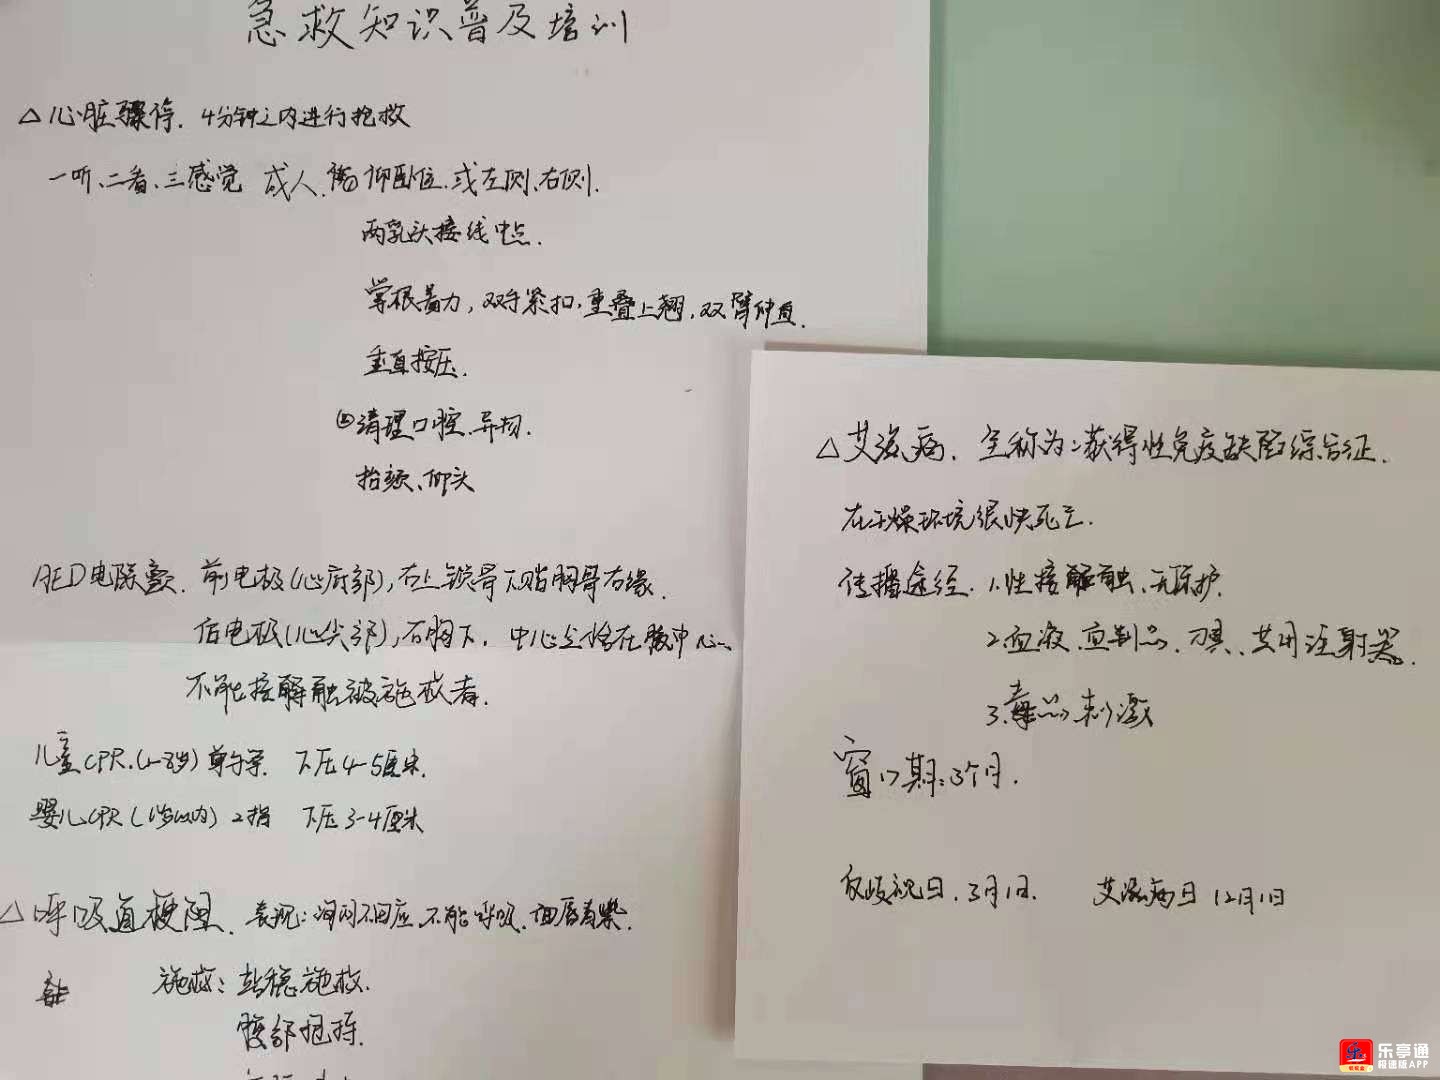 急救知识普及培训
△心脏骤停. 4分钟之内进行抢救
一听、二看、三感觉 成人. 仰卧位.或左侧、右侧.
两乳头接线中点.
掌根着力,双手紧扣.重叠上翘,双臂伸直.
垂直按压.
清理口腔.异物.
抬颏、仰头
AED电除颤. 前电极(心底部),右上锁骨下贴胸骨右缘.
后电极(心尖部),右胸下, 中心点恰在腋中心、
不能接触被施救者.
儿童CPR.(1-8岁)单手掌. 下压4-5厘米.
婴儿CPR(1岁以内)2指 下压3-4厘米
△呼吸道梗阻. 表现:询问不回应.不能呼吸.面唇青紫.
施救:站稳施救.
腹部抱持.
△艾滋病. 全称为:获得性免疫缺陷综合征.
在干燥环境很快死亡.
传播途径. 1.性接触、无保护.
2.血液.血制品、刀具、共用注射器.
3.毒品刺激
窗口期:3个月.
反歧视日.3月1日. 艾滋病日12月1日
乐亭通
极速版APP